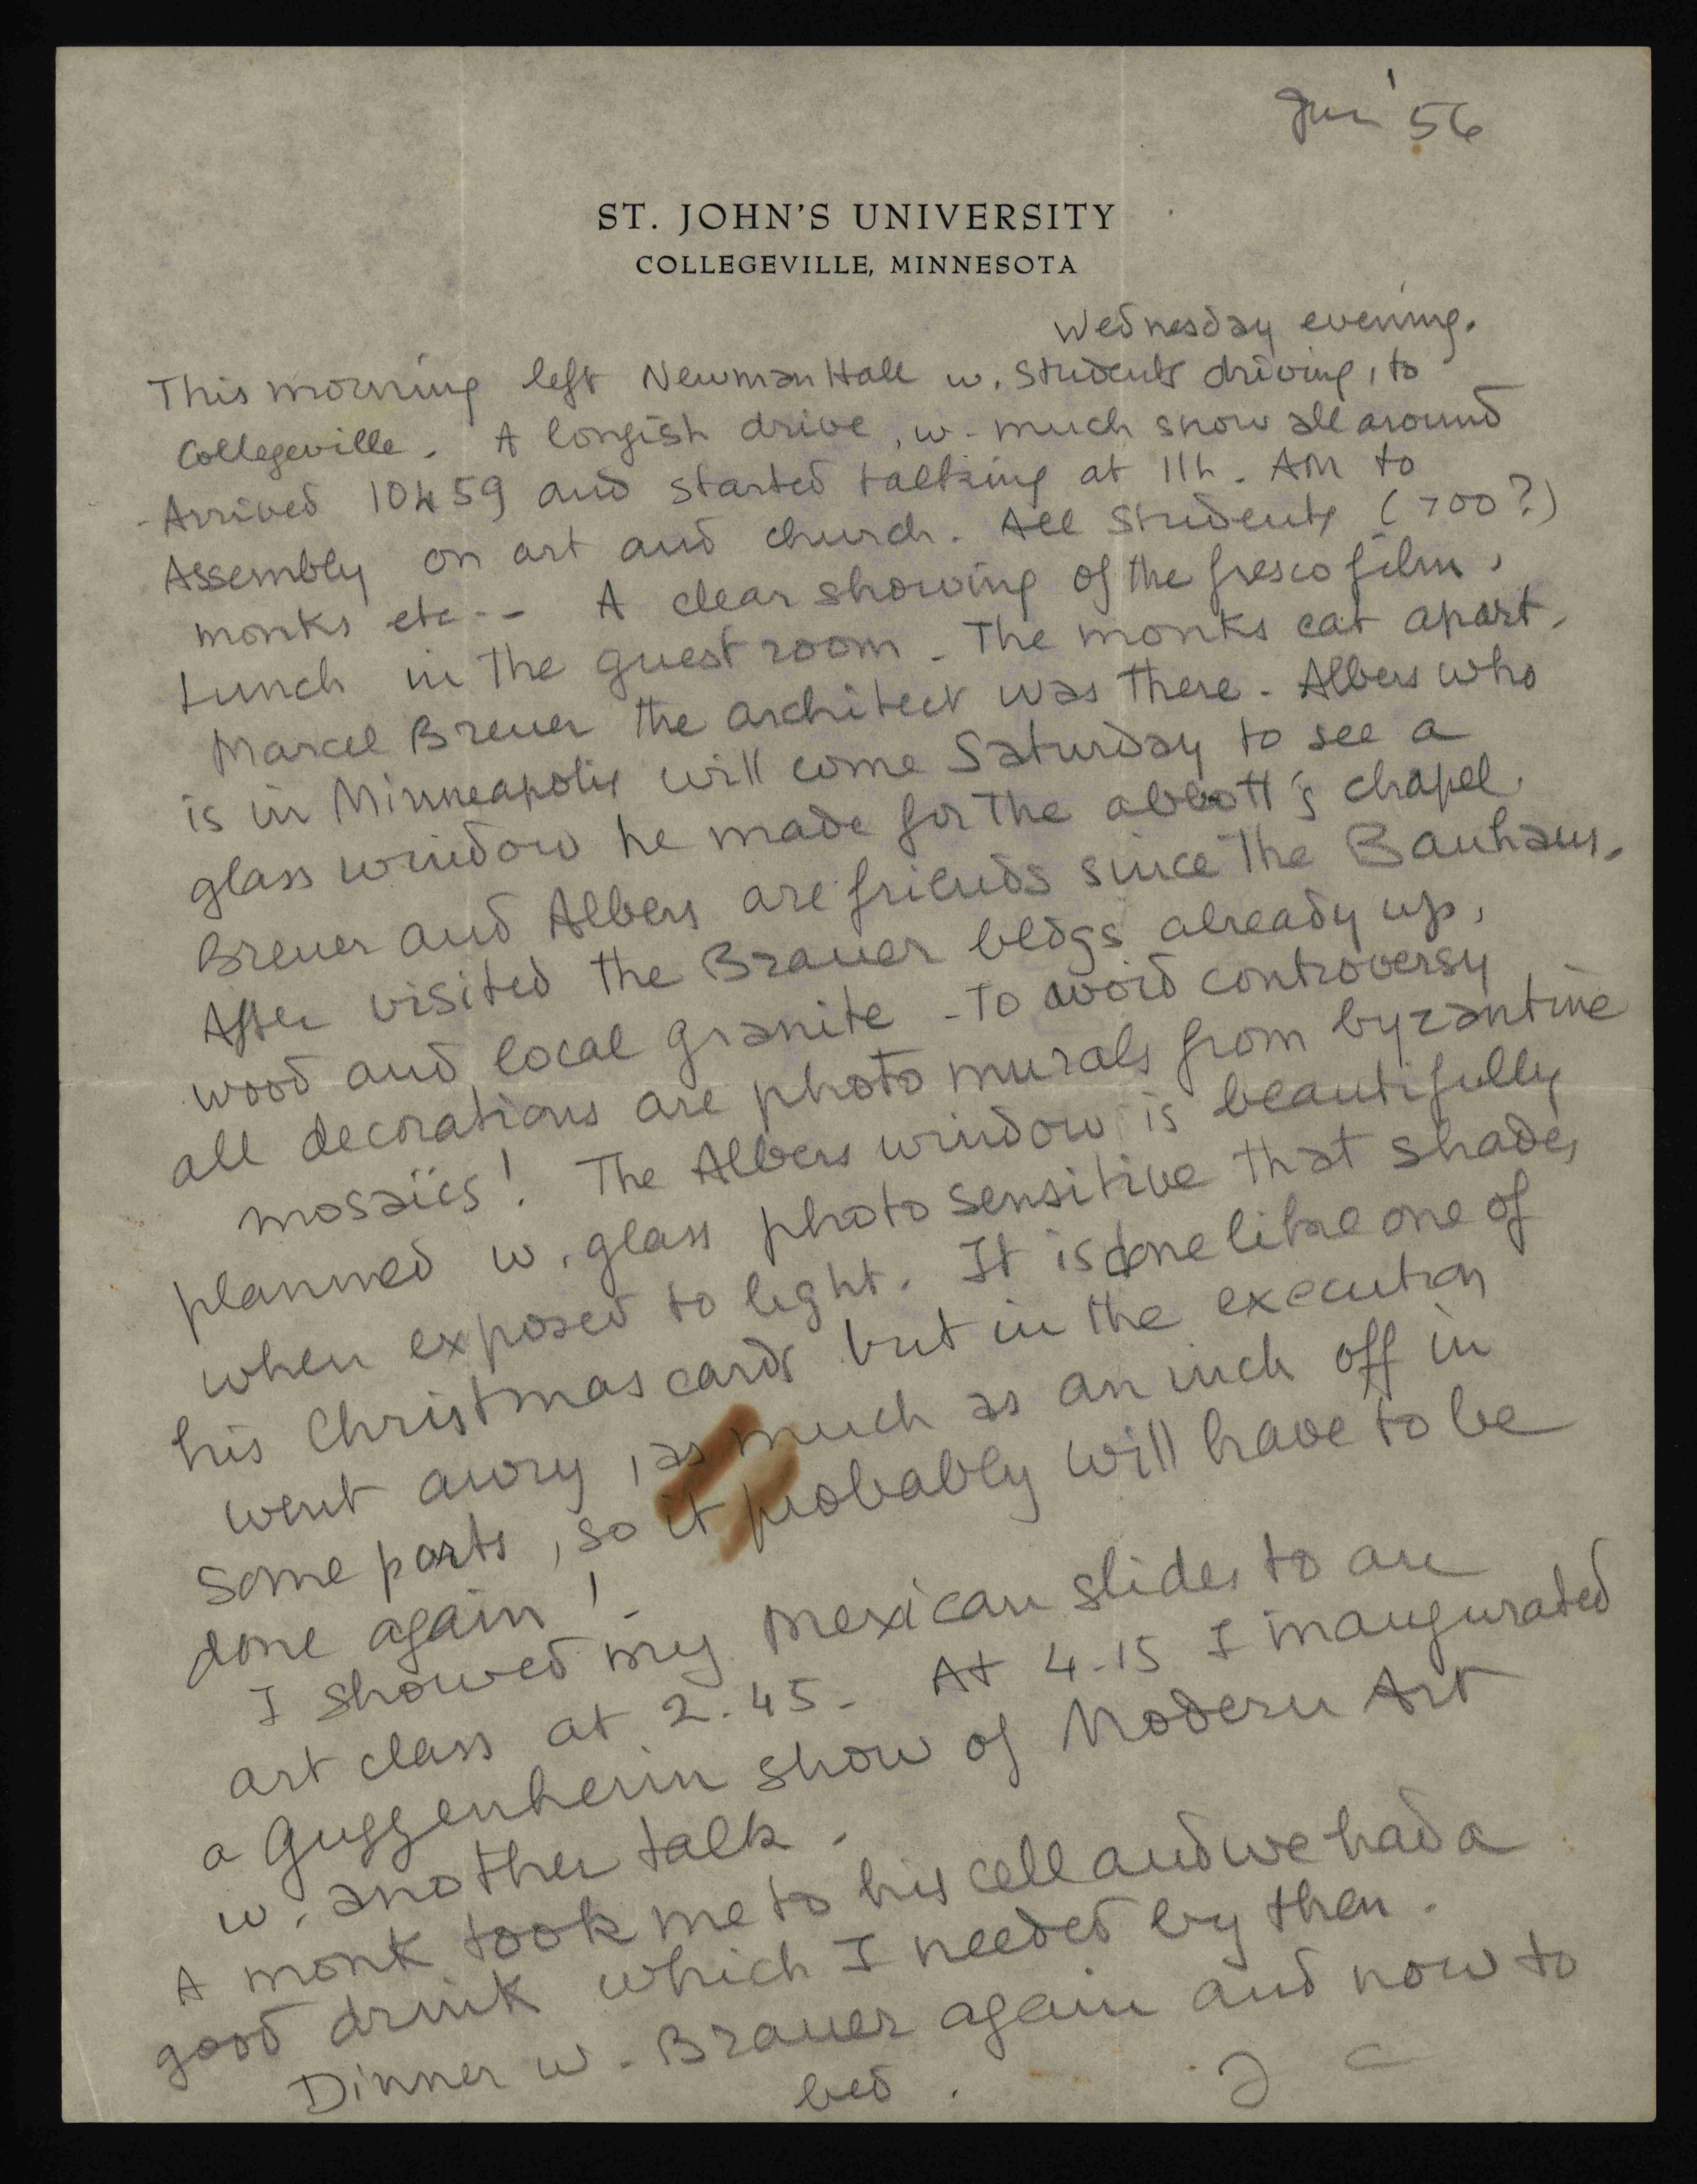 Jan '56
ST. JOHN'S UNIVERSITY
COLLEGEVILLE, MINNESOTA
Wednesday evening.
This morning left Newman Hall w. students driving, to
Collegeville. A longish drive, w. much snow all around
Arrived 10h59 and started talking at 11h. AM to
Assembly on art and church. All students (700?)
monks etc -- A clear showing of the fresco film,
Lunch in the guest room - The monks eat apart.
Marcel Breuer the architect was there - Albers who
is in Minneapolis will come Saturday to see a
glass window he made for the abbott's chapel.
Breuer and Albers are friends since the Bauhaus.
After visited the Brauer bldgs already up,
wood and local granite - To avoid controversy
all decorations are photo murals from byzantine
mosaics! The Albers window is beautifully
planned w. glass photo sensitive that shades
when exposed to light. It is done like one of
his Christmas cards but in the execution
went awry, as much as an inch off in
some parts, so it probably will have to be
done again!
I showed my mexican slides to an
art class at 2.45 - At 4-15 I inaugurated
a Guggenheim show of Modern Art
w. another talk.
A monk took me to his cell and we had a
good drink which I needed by then.
Dinner w. Brauer again and now to
bed.
J C